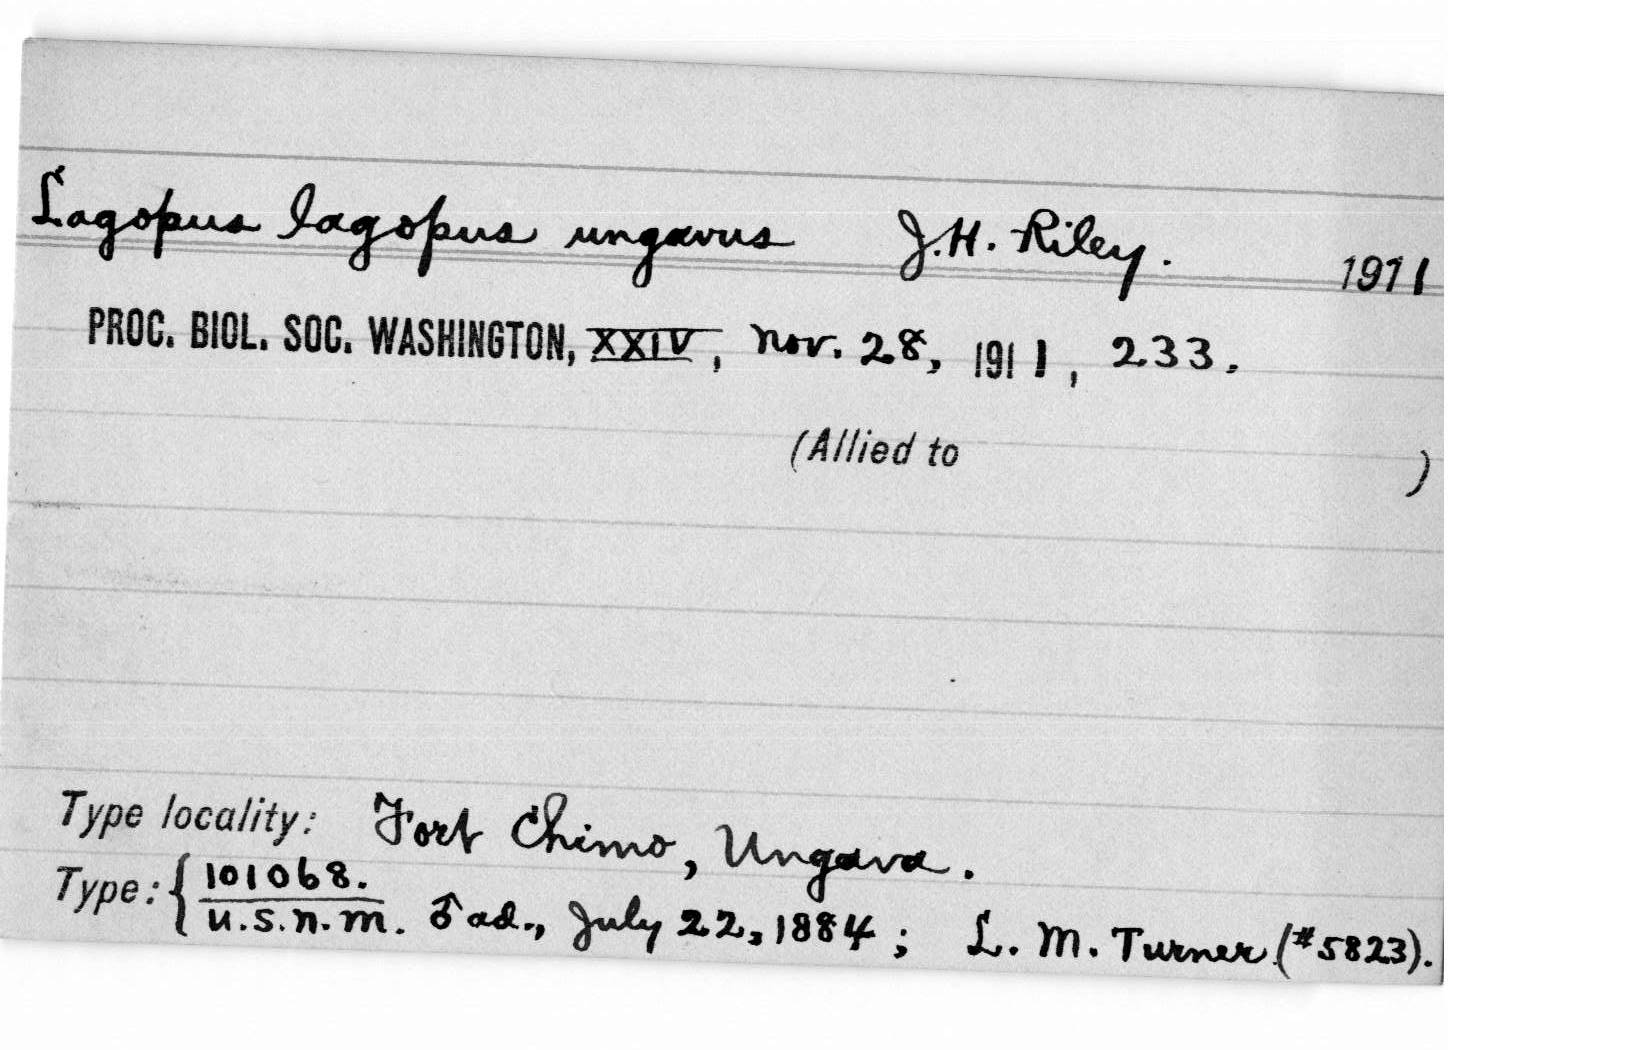 Lagopus lagopus ungavus J.H. Riley. 1911
PROC. BIOL. SOC. WASHINGTON, XXIV, Nov. 28, 1911, 233.
(Allied to )
Type locality: Fort Chimo, Ungava.
Type: { 101068.
U.S.N.M. ♂ ad., July 22, 1884; L. M. Turner (#5823).